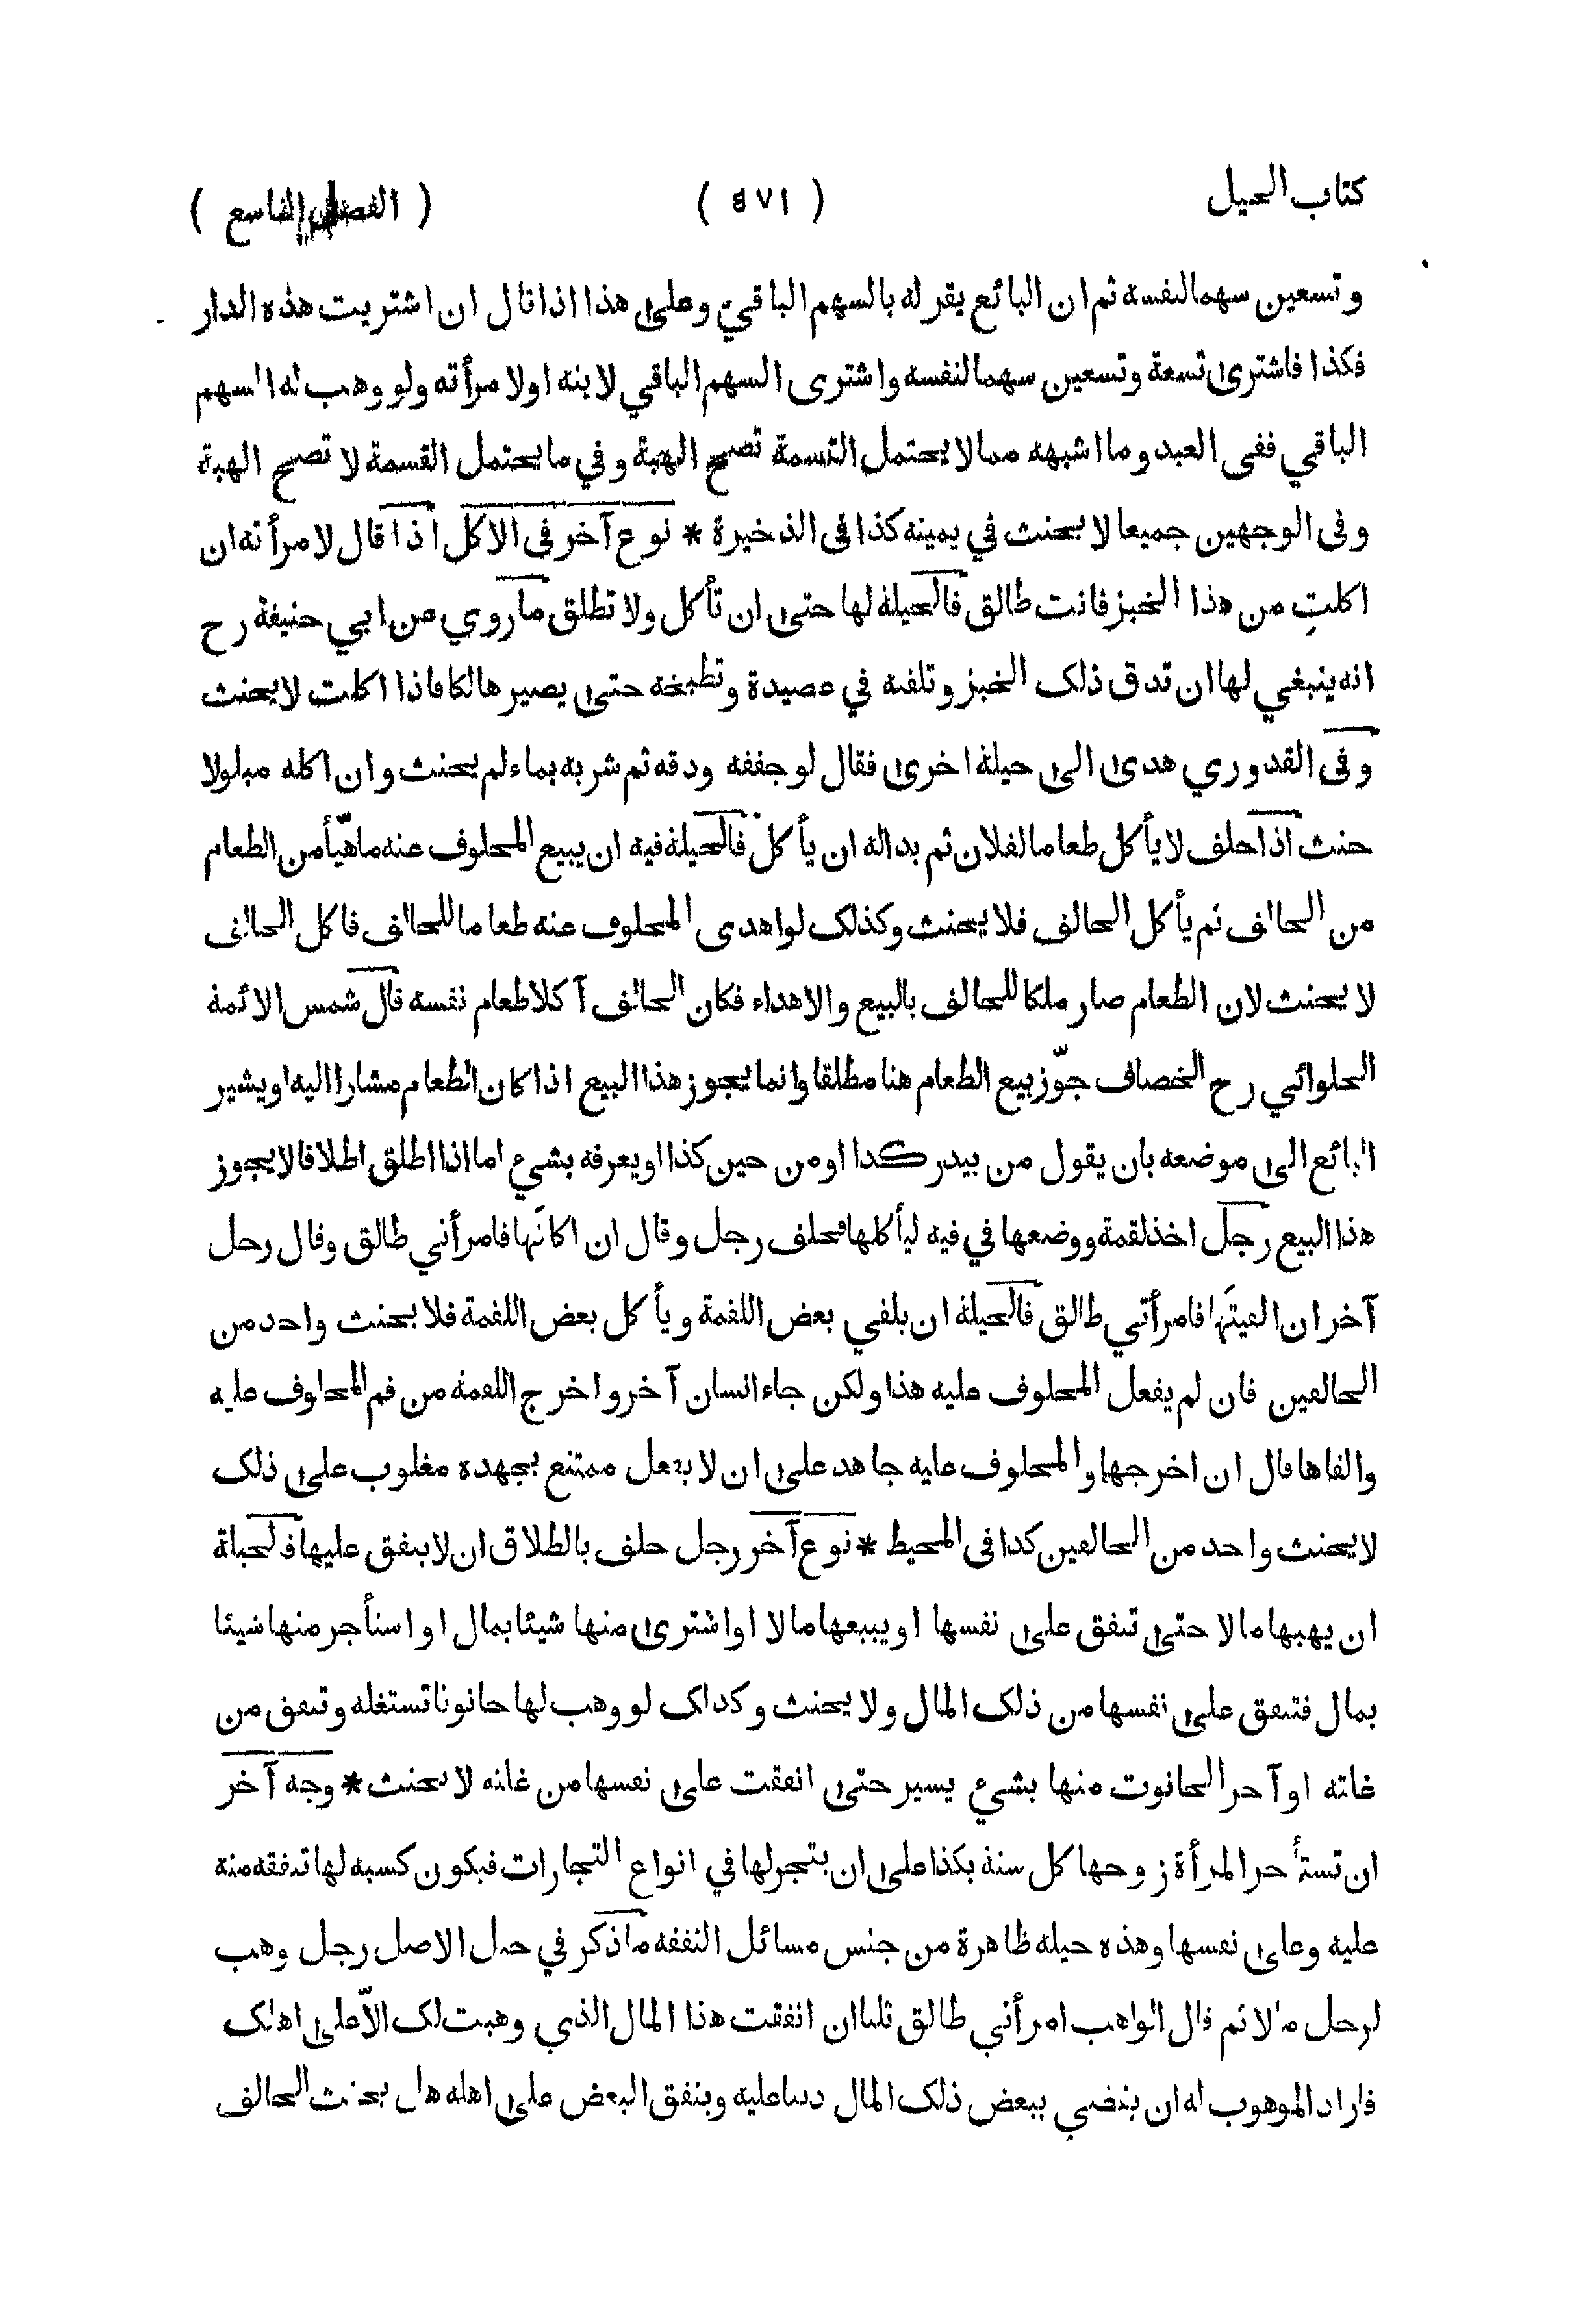 كتاب الحيل ( ٥٧١ ) ( الفصل التاسع )
وتسعين سهما لنفسه ثم ان البائع يقر له بالسهم الباقي وعلى هذا اذا قال ان اشتريت هذه الدار
فكذا فاشترى تسعة وتسعين سهما لنفسه واشترى السهم الباقي لابنه اولامرأته ولو وهب له السهم
الباقي ففي العبد وما اشبهه مما لا يحتمل القسمة تصح الهبة وفي ما يحتمل القسمة لا تصح الهبة
وفى الوجهين جميعا لا يحنث في يمينه كذا فى الذخيرة * نوع آخر فى الاكل اذا قال لامرأته ان
اكلتِ من هذا الخبز فانت طالق فالحيلة لها حتى ان تأكل ولا تطلق ما روي من ابي حنيفة رح
انه ينبغي لها ان تدق ذلك الخبز وتلقه في عصيدة وتطبخه حتى يصير هالكا فاذا اكلت لا يحنث
وفى القدوري هدى الى حيلة اخرى فقال لو جففه ودقه ثم شربه بماء لم يحنث وان اكله مبلولا
حنث اذا حلف لا يأكل طعاما لفلان ثم بداله ان يأكل فالحيلة فيه ان يبيع المحلوف عنه ما هيّأ من الطعام
من الحالف ثم يأكل الحالف فلا يحنث وكذلك لو اهدى المحلوف عنه طعاما للحالف فاكل الحالف
لا يحنث لان الطعام صار ملكا للحالف بالبيع والاهداء فكان الحالف آكلا طعام نفسه قال شمس الائمة
الحلوائي رح الخصاف جوّز بيع الطعام هنا مطلقا وانما يجوز هذا البيع اذا كان الطعام مشارا اليه او يشير
البائع الى موضعه بان يقول من بيدر كذا او من حين كذا او يعرفه بشيء اما اذا اطلق اطلاقا لا يجوز
هذا البيع رجل اخذ لقمة ووضعها في فيه ليأكلها فحلف رجل وقال ان اكلتَها فامرأتي طالق وقال رجل
آخر ان القيتَها فامرأتي طالق فالحيلة ان يلقي بعض اللقمة ويأكل بعض اللقمة فلا يحنث واحد من
الحالفين فان لم يفعل المحلوف عليه هذا ولكن جاء انسان آخر واخرج اللقمة من فم المحلوف عليه
والقاها قال ان اخرجها والمحلوف عليه جاهد على ان لا يفعل ممتنع بجهده مغلوب على ذلك
لا يحنث واحد من الحالفين كذا فى المحيط * نوع آخر رجل حلف بالطلاق ان لا ينفق عليها فالحيلة
ان يهبها مالا حتى تنفق على نفسها او يبيعها مالا او اشترى منها شيئا بمال او استأجر منها شيئا
بمال فتنفق على نفسها من ذلك المال ولا يحنث وكذلك لو وهب لها حانوتا تستغله وتنفق من
غلته او آجر الحانوت منها بشيء يسير حتى انفقت على نفسها من غلته لا يحنث * وجه آخر
ان تستأجر المرأة زوجها كل سنة بكذا على ان يتجر لها في انواع التجارات فيكون كسبه لها تنفقه منه
عليه وعلى نفسها وهذه حيلة ظاهرة من جنس مسائل النفقه ما ذكر في حيل الاصل رجل وهب
لرجل مالا ثم قال الواهب امرأتي طالق ثلثا ان انفقت هذا المال الذي وهبت لك الاّ على اهلك
فاراد الموهوب له ان يقضي ببعض ذلك المال دينا عليه وينفق البعض على اهله هل يحنث الحالف